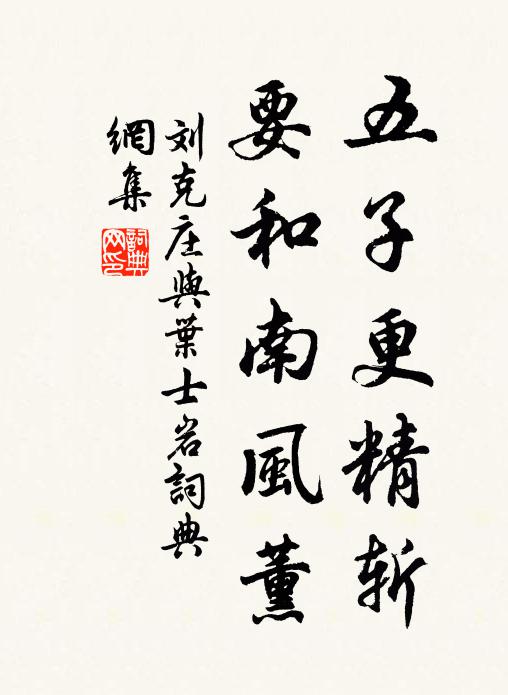 五子更精斩
要和南風薰
刘克庄與葉士岩詞典
網集
詞典網印